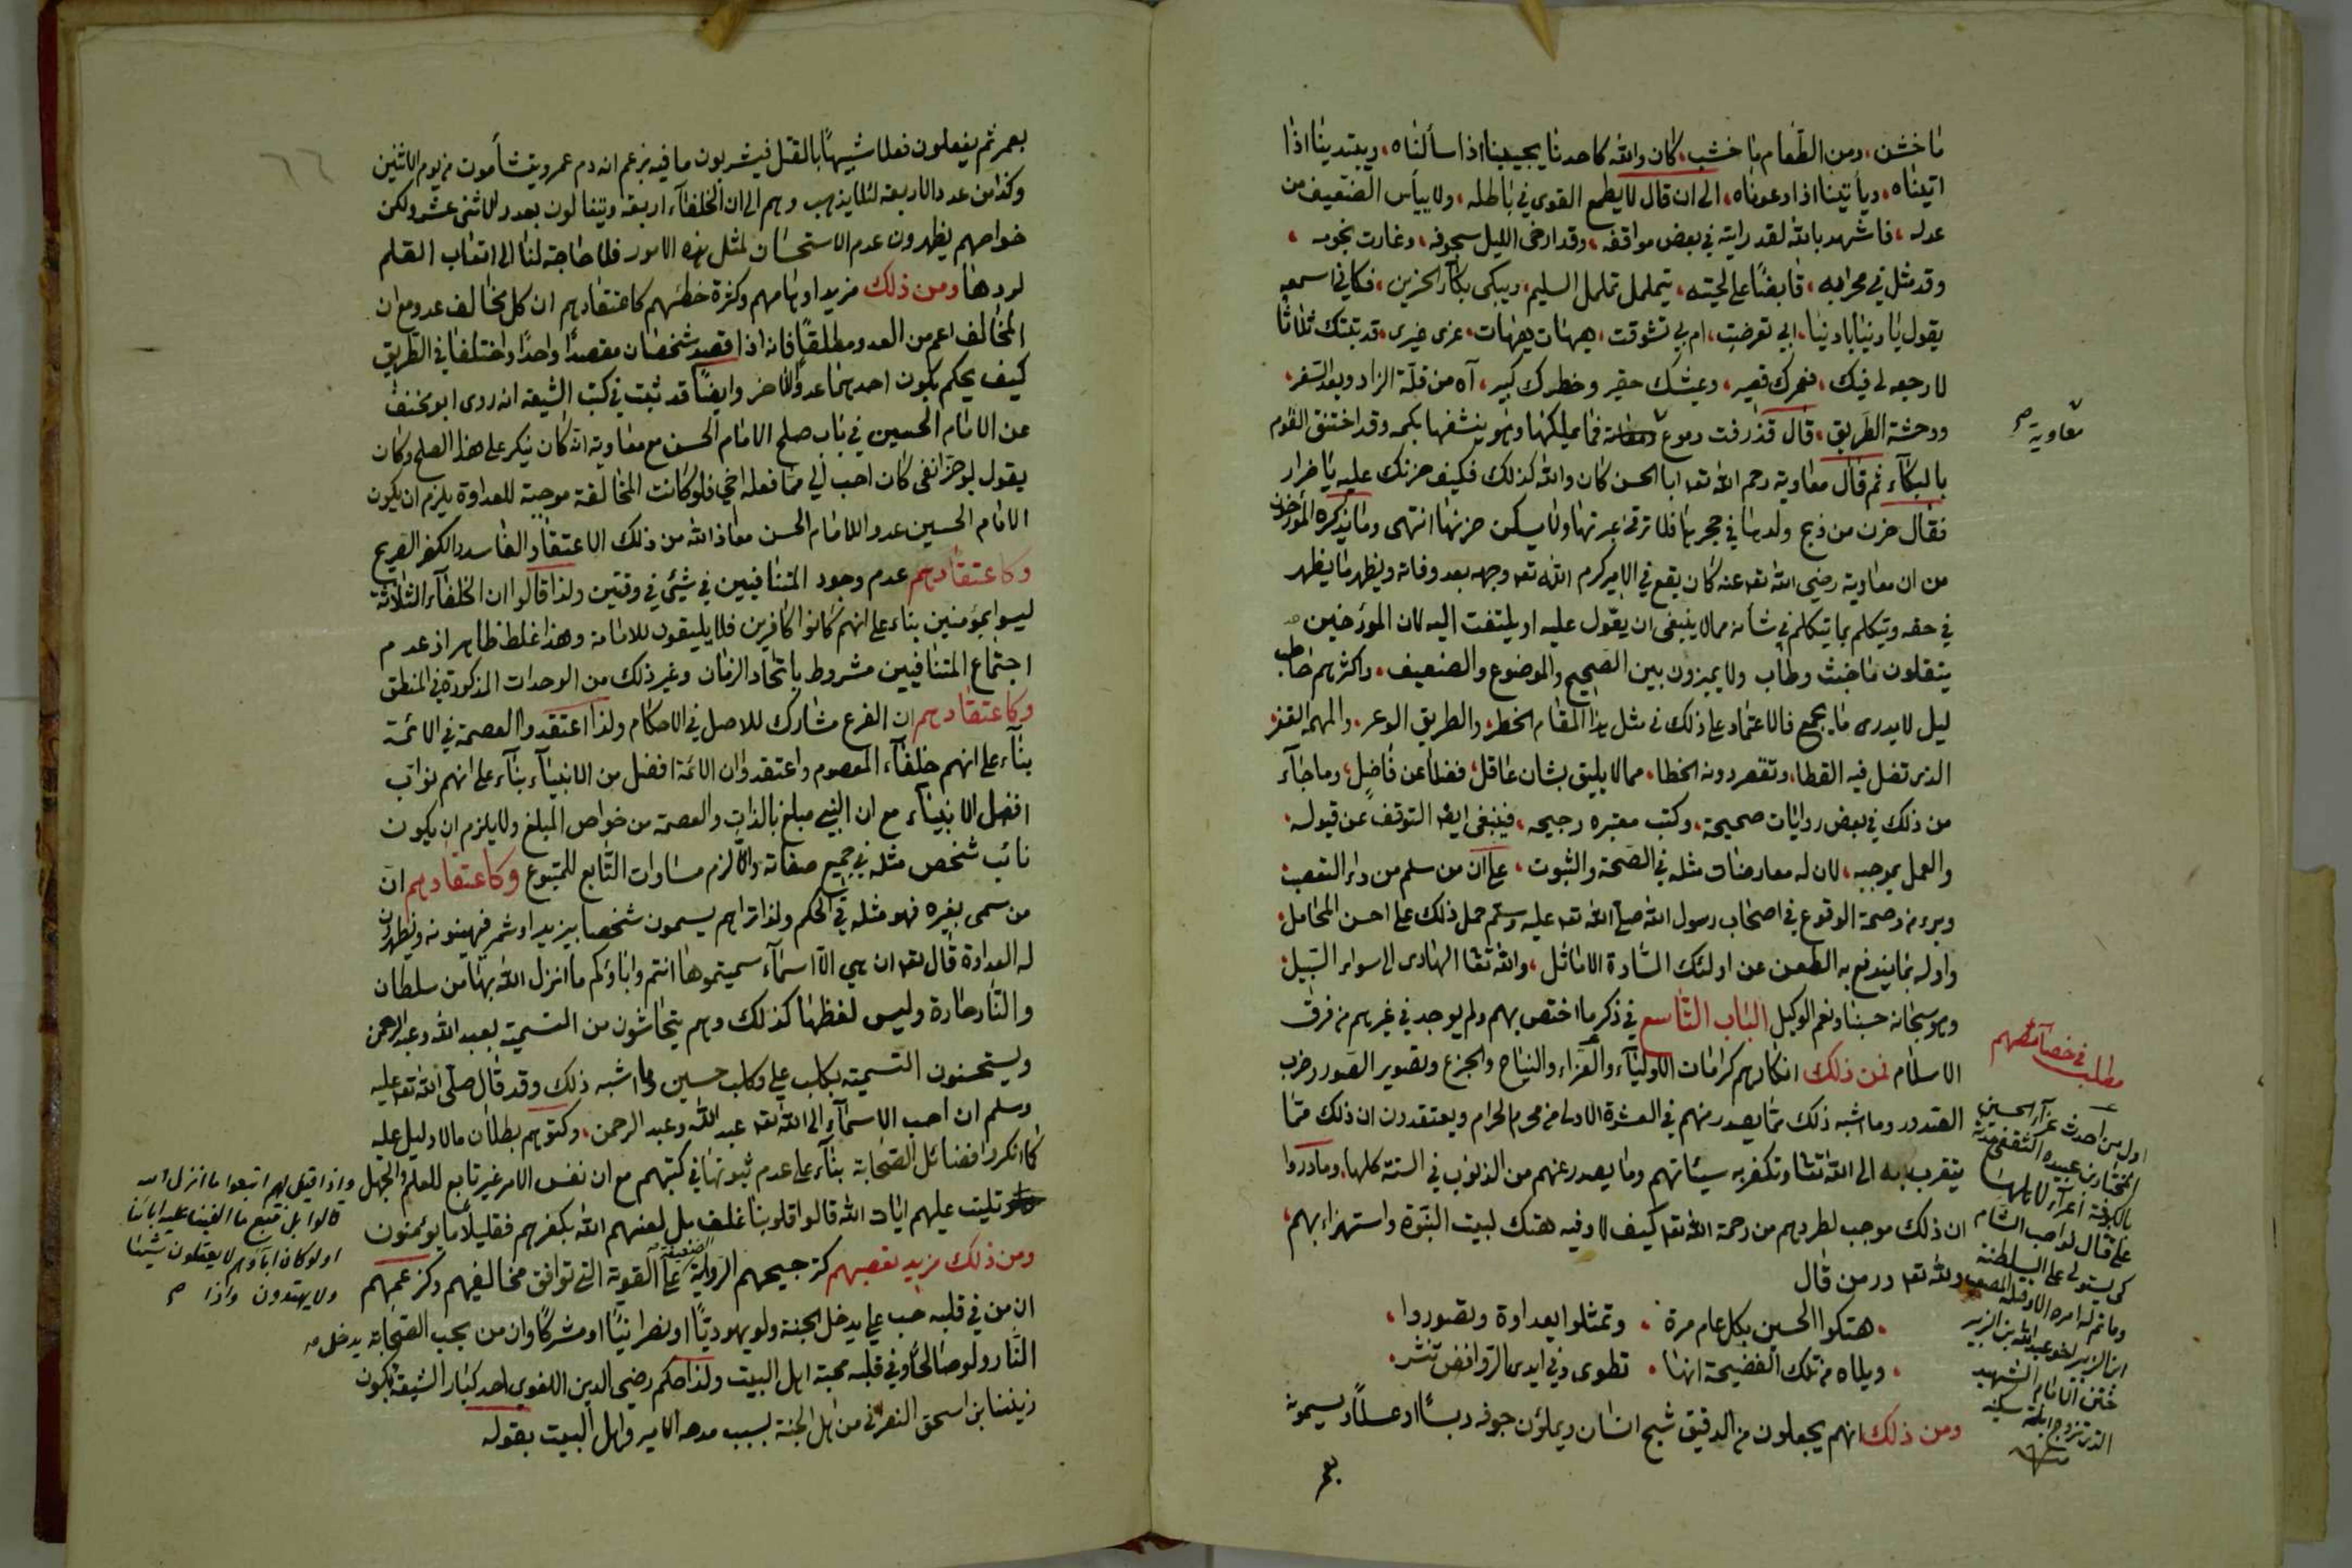 ما خشن، ومن الطعام ما خشب، كان والله كاحدنا يجيبنا اذا سألناه، ويبتدينا اذا
اتيناه، ويأتينا اذا دعوناه، الى ان قال لا يطمع القوى في باطله، ولا ييأس الضعيف من
عدله، فاشهد بالله لقد رايته في بعض مواقفه، وقد ارخى الليل سجوفه، وغارت نجومه،
وقد مثل في محرابه، قابضًا على لحيته، يتململ تململ السليم، ويبكى بكآء الحزين، فكاني اسمعه
يقول يا دنيا يا دنيا، ابي تعرضت، ام بي تشوقت، هيهات هيهات، غرى غيرى، قد بتتك ثلاثا
لا رجعه لى فيك، فعمرك قصير، وعيشك حقير وخطرك كبير، آه من قلة الزاد وبعد السفر،
ووحشة الطريق، قال فذرفت دموع معاوية فما يملكها وهو ينشفها بكمه وقد اختنق القوم
بالبكآء ثم قال معاوية رحم الله تعه ابا الحسن كان والله كذلك فكيف حزنك عليه يا ضرار
فقال حزن من ذبح ولدها في حجرها فلا ترقئ عبرتها ولا يسكن حزنها انتهى وما يذكره المؤرخون
من ان معاوية رضى الله تعه عنه كان يقع في الامير كرم الله تعه وجهه بعد وفاته ويظهر ما يظهر
في حقه ويتكلم بما يتكلم في شأنه مما لا ينبغى ان يقول عليه او يلتفت اليه لان المؤرخين
ينقلون ما خبث وطاب ولا يميزون بين الصحيح والموضوع والضعيف، واكثرهم حاطب
ليل لا يدرى ما يجمع فالاعتماد على ذلك في مثل هذا المقام الخطر، والطريق الوعر، والمهمه القفر،
الذى تضل فيه القطا، وتقصر دونه الخطا، مما لا يليق بشان عاقل، فضلا عن فاضل، وما جآء
من ذلك في بعض روايات صحيحة، وكتب معتبره رجيحه، فينبغى ايضا التوقف عن قبوله،
والعمل بموجبه، لان له معارضات مثله في الصحة والثبوت، على ان من سلم من داء التعصب
وبرء من وصمة الوقوع في اصحاب رسول الله صلى الله تعه عليه وسلم حمل ذلك على احسن المحامل،
واوله بما يندفع به الطعن عن اولئك السادة الاماثل، والله تعا الهادى الى سواء السبيل،
وهو سبحانه حسبنا ونعم الوكيل الباب التاسع في ذكر ما اختص بهم ولم يوجد في غيرهم من فرق
الاسلام فمن ذلك انكارهم كرامات الاوليآء والعزاء والنياح والجزع وتصوير الصور وضرب
الصدور وما اشبه ذلك مما يصدر منهم في العشرة الاولى من محرم الحرام ويعتقدون ان ذلك مما
يتقرب به الى الله تعا وتكفر به سيئاتهم وما يصدر عنهم من الذنوب في السنة كلها، وما دروا
ان ذلك موجب لطردهم من رحمة الله تعه كيف لا وفيه هتك لبيت النبوة واستهزاء بهم،
ولله تعه در من قال
هتكوا الحسين بكل عام مرة، وتمثلوا بعداوة وتصوروا،
ويلاه من تلك الفضيحة انها، تطوى وفى ايدى الروافض تنشر،
ومن ذلك انهم يجعلون من الدقيق شبح انسان ويملؤن جوفه دبسًا او عسلًا ويسمونه
بعمر
معاوية صح
مطلب في خصائصهم
اول من احدث عزآء الحسين
المختار بن عبيده الثقفى
بالكوفة اغرآء لاهلها
على قتال نواصب الشام
كى يستولى على السلطنة
وما تم له امره
ابن الزبير اخو عبد الله بن الزبير
ختن الامام الشهيد
الذى تزوج ابنته سكينة
٦٦
بعمر ثم يفعلون فعلا شبيهًا بالقتل فيشربون ما فيه بزعم انه دم عمر ويتشأمون من يوم الاثنين
وكذا من عدد الاربعة لئلا يذهب وهم الى ان الخلفآء اربعة ويتفالون بعدد الاثنى عشر ولكن
خواصهم يظهرون عدم الاستحسان لمثل هذه الامور فلا حاجة لنا الى اتعاب القلم
لردها ومن ذلك مزيد اوهامهم وكثرة خطئهم كاعتقادهم ان كل مخالف عدو مع ان
المخالف اعم من العدو مطلقًا فانه اذا قصد شخصان مقصدًا واحدًا واختلفا في الطريق
كيف يحكم بكون احدهما عدوًا للاخر وايضًا قد ثبت في كتب الشيعه انه روى ابو مخنف
عن الامام الحسين في باب صلح الامام الحسن مع معاوية انه كان ينكر على هذا الصلح وكان
يقول لو جز انفى كان احب الي مما فعله اخي فلو كانت المخالفة موجبة للعداوة يلزم ان يكون
الامام الحسين عدوا للامام الحسن معاذ الله من ذلك الاعتقاد الفاسد والكفر الصريح
وكاعتقادهم عدم وجود المتنافيين في شيئ في وقتين ولذا قالوا ان الخلفآء الثلاثة
ليسوا بمؤمنين بناء على انهم كانوا كافرين فلا يليقون للامامة وهذا غلط ظاهر اذ عدم
اجتماع المتنافيين مشروط باتحاد الزمان وغير ذلك من الوحدات المذكورة في المنطق
وكاعتقادهم ان الفرع مشارك للاصل في الاحكام ولذا اعتقدوا العصمة في الائمة
بنآء على انهم خلفآء المعصوم واعتقدوا ان الائمة افضل من الانبيآء بنآء على انهم نواب
افضل الانبيآء مع ان النبي مبلغ بالذات والعصمة من خواص المبلغ ولا يلزم ان يكون
نائب شخص مثله في جميع صفاته والا لزم مساوات التابع للمتبوع وكاعتقادهم ان
من سمى بغيره فهو مثله في الحكم ولذا تراهم يسمون شخصا بيزيد او شمر فيهينونه ويظهرون
له العداوة قال تعه ان هي الا اسمآء سميتموها انتم واباؤكم ما انزل الله بها من سلطان
والنار حارة وليس لفظها كذلك وهم يتحاشون من التسمية بعبد الله وعبد الرحمن
ويستحسنون التسمية بكلب علي وكلب حسين وما اشبه ذلك وقد قال صلى الله تعه عليه
وسلم ان احب الاسمآء الى الله تعه عبد الله وعبد الرحمن، وكتوهم بطلان ما لا دليل عليه
كما انكروا فضائل الصحابة بنآء على عدم ثبوتها في كتبهم مع ان نفس الامر غير تابع للعلم والجهل
تليت عليهم ايات الله قالوا قلوبنا غلف بل لعنهم الله بكفرهم فقليلًا ما يؤمنون
ومن ذلك مزيد تعصبهم كترجيحهم الرواية الضعيفة على القوية التى توافق مخالفيهم وكزعمهم
ان من في قلبه حب علي يدخل الجنة ولو يهوديًا او نصرانيًا او مشركًا وان من يحب الصحابة يدخل
النار ولو صالحًا وفي قلبه محبة اهل البيت ولذا حكم رضى الدين اللغوى احد كبار الشيعة بكون
زينبا بن اسحق النصرانى من اهل الجنة بسبب مدحه الامير واهل البيت بقوله
واذا قيل لهم اتبعوا ما انزل الله
قالوا بل نتبع ما الفينا عليه اباءنا
اولو كان اباؤهم لا يعقلون شيئا
ولا يهتدون واذا صح